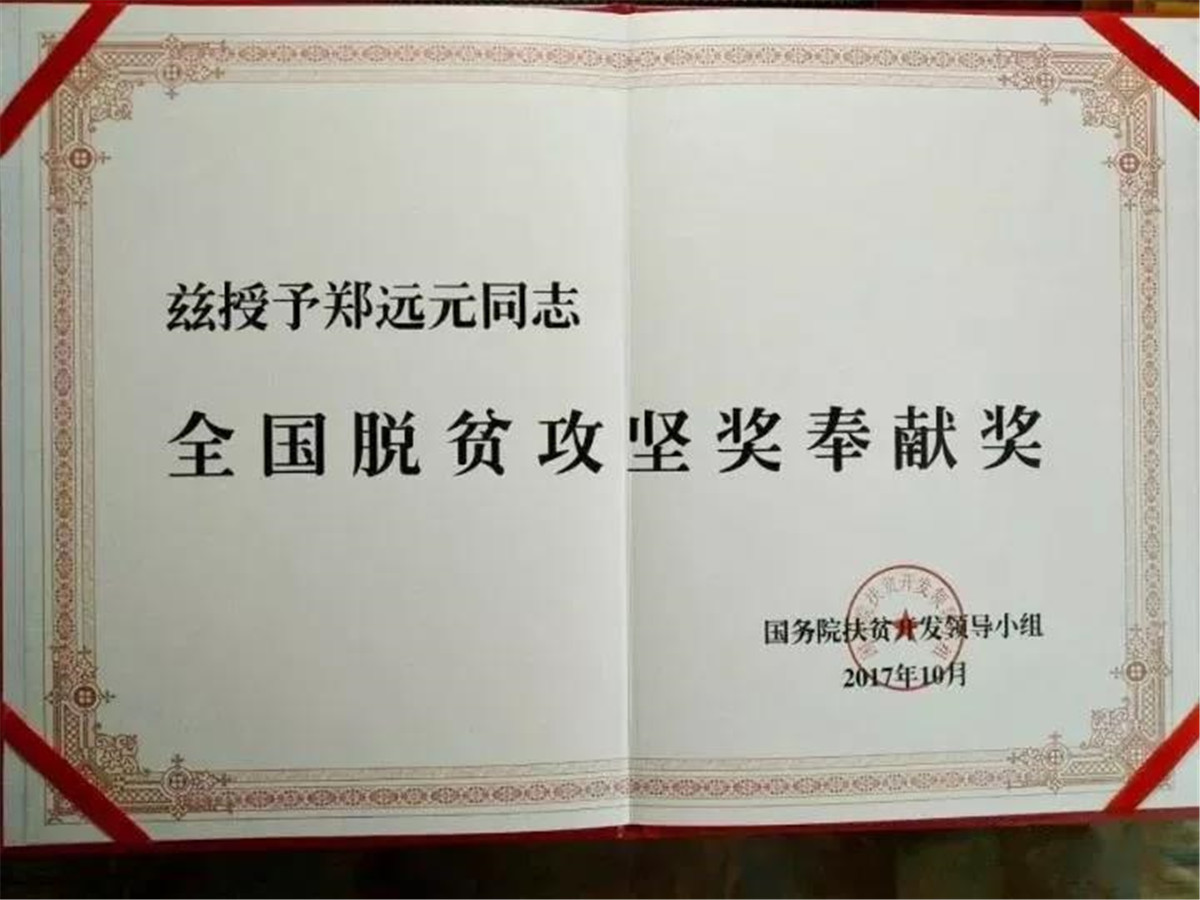 兹授予郑远元同志
全国脱贫攻坚奖奉献奖
国务院扶贫开发领导小组
2017年10月